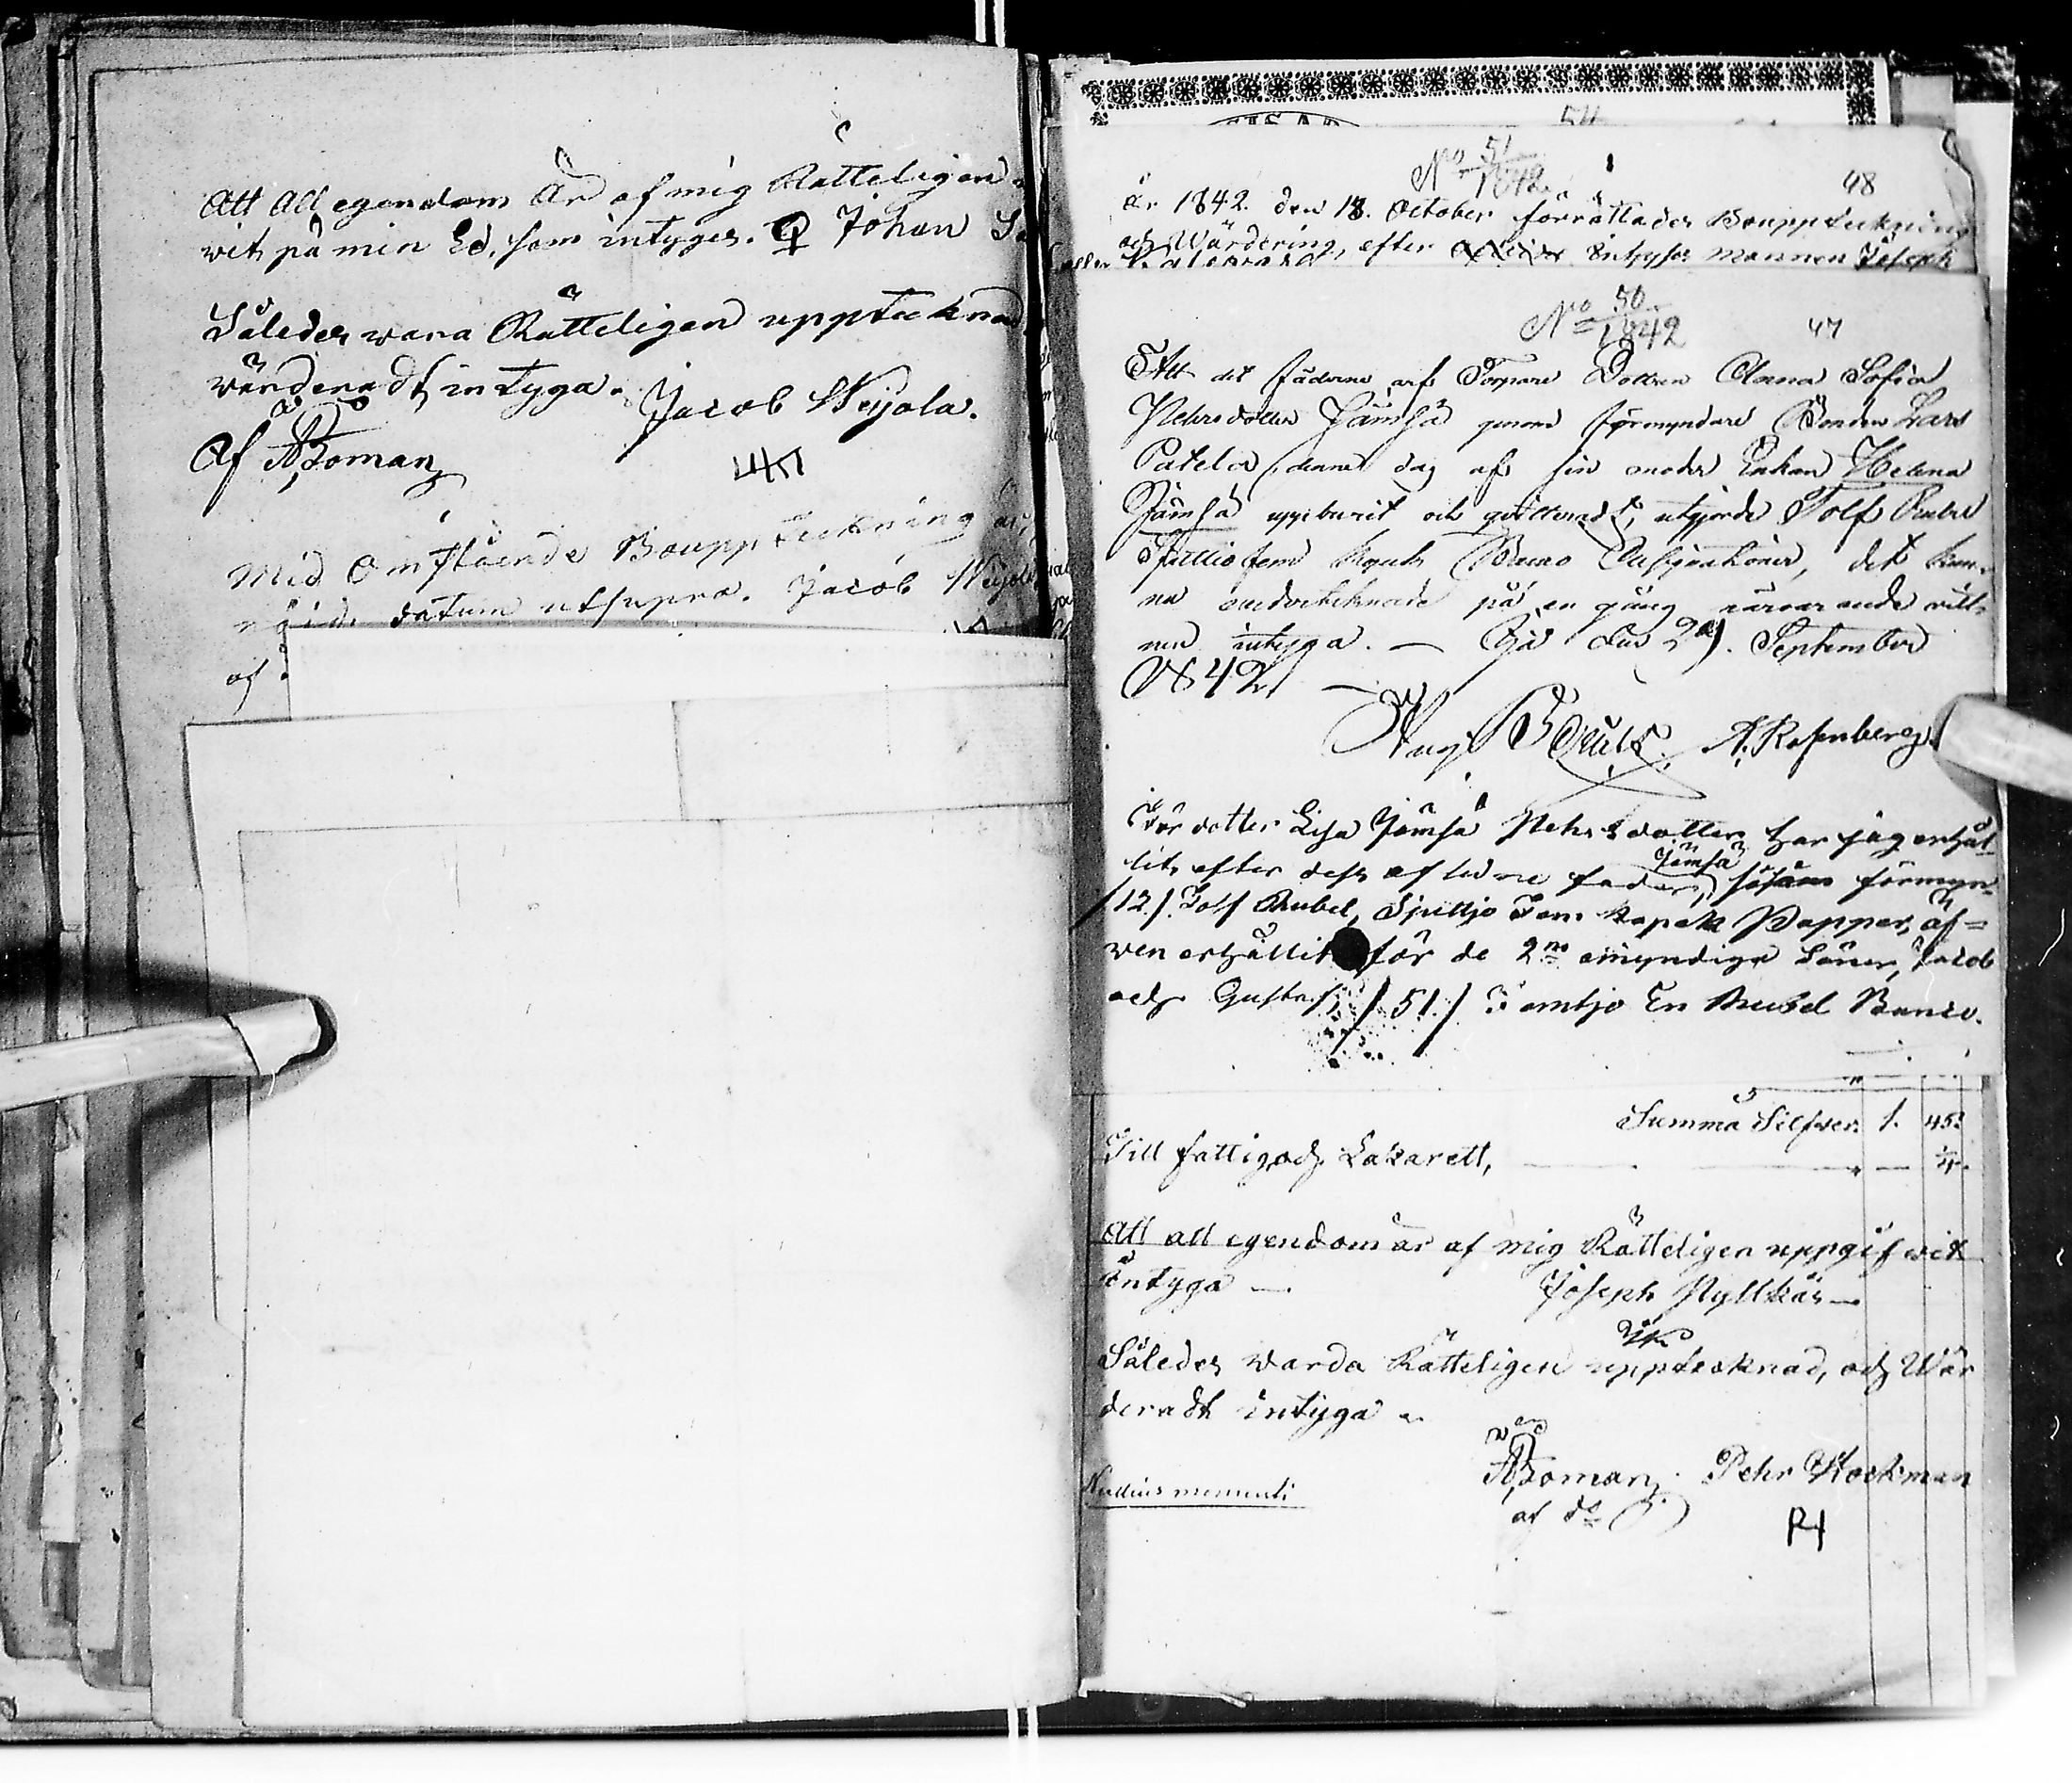 Att All egendom är af mig Rätteligen
wit på min Ed. som intyges. Johan
Således wara Rätteligen upptecknad
wärderadt, intyga. Jacob Weijola.
Af ABoman
Med Omstående Bouppteckning är
nöjd. datum utsupra. Jacob Weijola
af
54
No 51/1842 48
år 1842. den 18. October förrättades Bouppteckning
och Wärdering, efter Inhyses mannen Joseph
No 50/1842 47
Att det fäderne arf Torpare Dottren Anna Sofia
Pehrsdotter Jämsä genom förmyndare Bonden Lars
Patela, denna dag af sin moder Enkan Helena
Jämsä uppburit och qvitteradt, utgjorde Tolf Rubel
Sjuttiofem kopek Banco Assignationer, det kun-
na undertecknade på en gång närvarande witt-
nen intyga. — Gjå den 29. September
1842. —
A. Rosenberg.
För dotter Lisa Jämsä Pehrsdotter har jag erhål-
lit, efter dess aflidne fader, Jämsä såsom förmyn-
/12./ Tolf Rubel, Sjuttjo Fem kopek Papper, äf-
wen erhållit för de 2ne omyndige Söner, Jacob
och Gustaf, /51./ Femtjo En Rubel Banco.
Summa Silfwer. 1. 45.
Till fattig, och Lazarett, — — 1/4.
Att all egendom är af mig Rätteligen uppgifwit
intyga — Joseph Nyllkäs —
Således warda Rätteligen upptecknad, och Wär
deradt intyga
ABoman. Pehr Stockman
af do